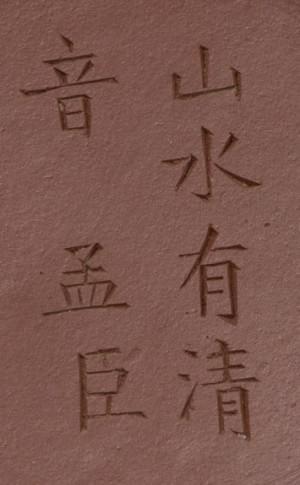 山水有清
音 孟臣